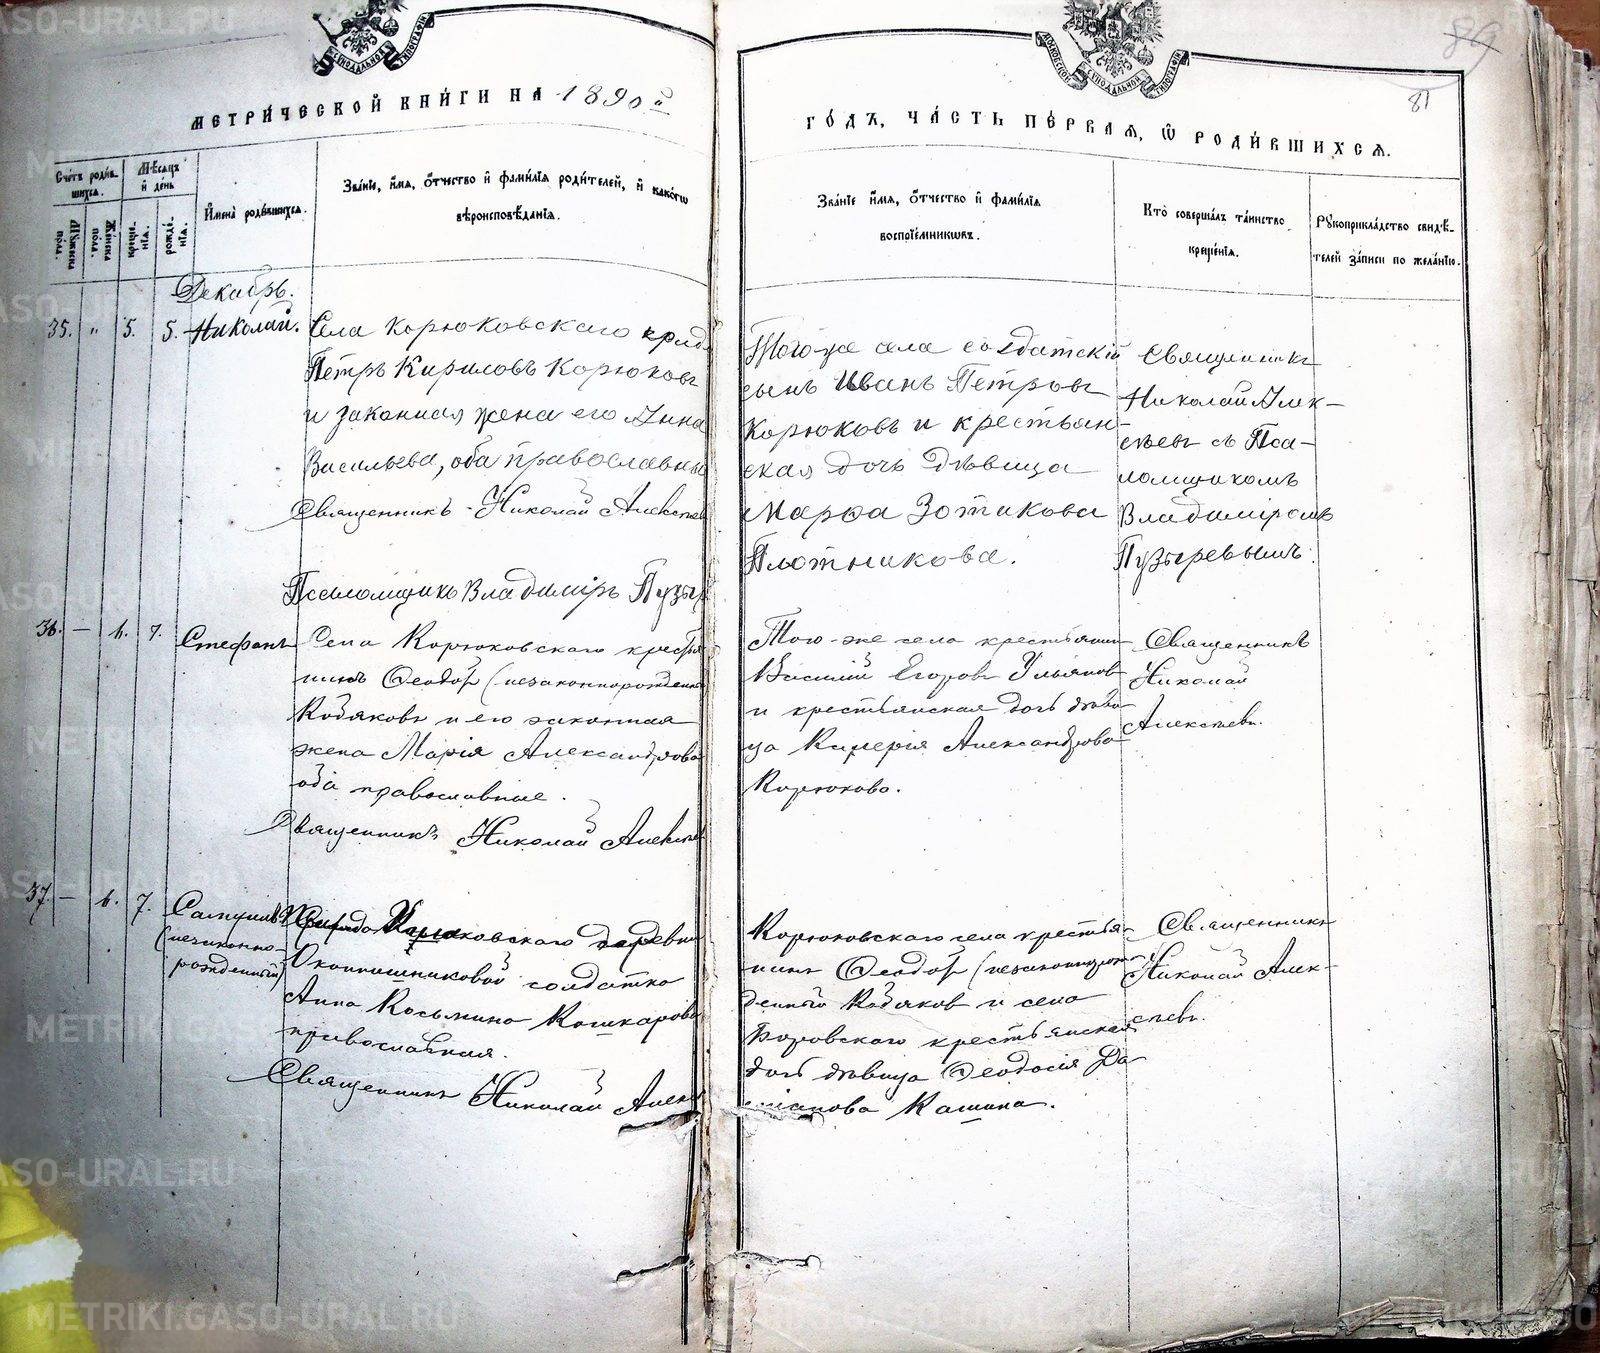 МЕТРИ́ЧЕСКОЙ КНИ́ГИ НА 1890й
ГО́ДЪ, ЧА́СТЬ ПЕ́РВАѦ, Ѡ҆ РОДИ́ВШИХСѦ.
89
81
Сче́тъ роди́вшихсѧ.
Мѣ́сѧцъ и҆ де́нь
Му́жеска по́ла.
Же́нска по́ла.
рожде́нїѧ.
креще́нїѧ.
И҆мена̀ роди́вшихсѧ.
Зва́нїе, и҆́мѧ, ѻ҆́тчество и҆ фами́лїѧ роди́телей, и҆ како́гѡ
вѣроисповѣ́данїѧ.
Зва́нїе и҆́мѧ, ѻ҆́тчество и҆ фами́лїѧ
воспрїе́мникѡвъ.
Кто̀ соверша́лъ та́инство
креще́нїѧ.
Рꙋкоприкла́дство свидѣ́-
телей за́писи по жела́нїю.
Декабрь.
35. " 5. 5. Николай.
Села Корюковскаго
Петръ Кириловъ Корюковъ
и законная жена его Анна
Васильева, оба православные
Священникъ Николай Алексѣев
Псаломщикъ Владимiръ Пузыр
Того-же села солдатскiй
сынъ Иванъ Петровъ
Корюковъ и крестьян-
ская дочь дѣвица
Марѳа Зотикова
Плотникова.
Священникъ
Николай Алек-
сѣевъ съ Пса-
ломщикомъ
Владимiромъ
Пузыревымъ.
36. — 6. 7. Стефанъ
Села Корюковскаго крестья
нинъ Ѳеодоръ (незаконнорожденный
Кодяковъ и его законная
жена Марiя Александрова
оба православные.
Священникъ Николай Алексѣев
Того-же села крестьянинъ
Василiй Егоровъ Ульянов
и крестьянская дочь дѣви
ца Валерiя Александрова
Корюкова.
Священникъ
Николай
Алексѣевъ.
37. — 6. 7.
(незаконно-
рожденный)
деревни
Окопишниковой солдатка
Анна Косьмина Кошкарова
православная.
Священникъ Николай Алекс
Корюковскаго села крестья-
нинъ Ѳеодоръ (незаконнорож
денный Кодяковъ и села
Боровскаго крестьянская
дочь дѣвица Ѳеодосiя Да
Кашина.
Священникъ
Николай Алек-
сѣевъ.
METRIKI.GASO-URAL.RU